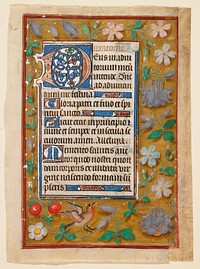 Deus in adiu
torium meum
intende. Dne
ad adiuuan
dum me festina
Gloria patri et filio et spi
ritui sancto
Sicut erat in principio et
nunc et semper et in secula se
culorum amen. Alleluia
Memento salutis auc
tor quod nostri quon
dam corporis ex illibata virgi
ne nascendo formam sum
pseris